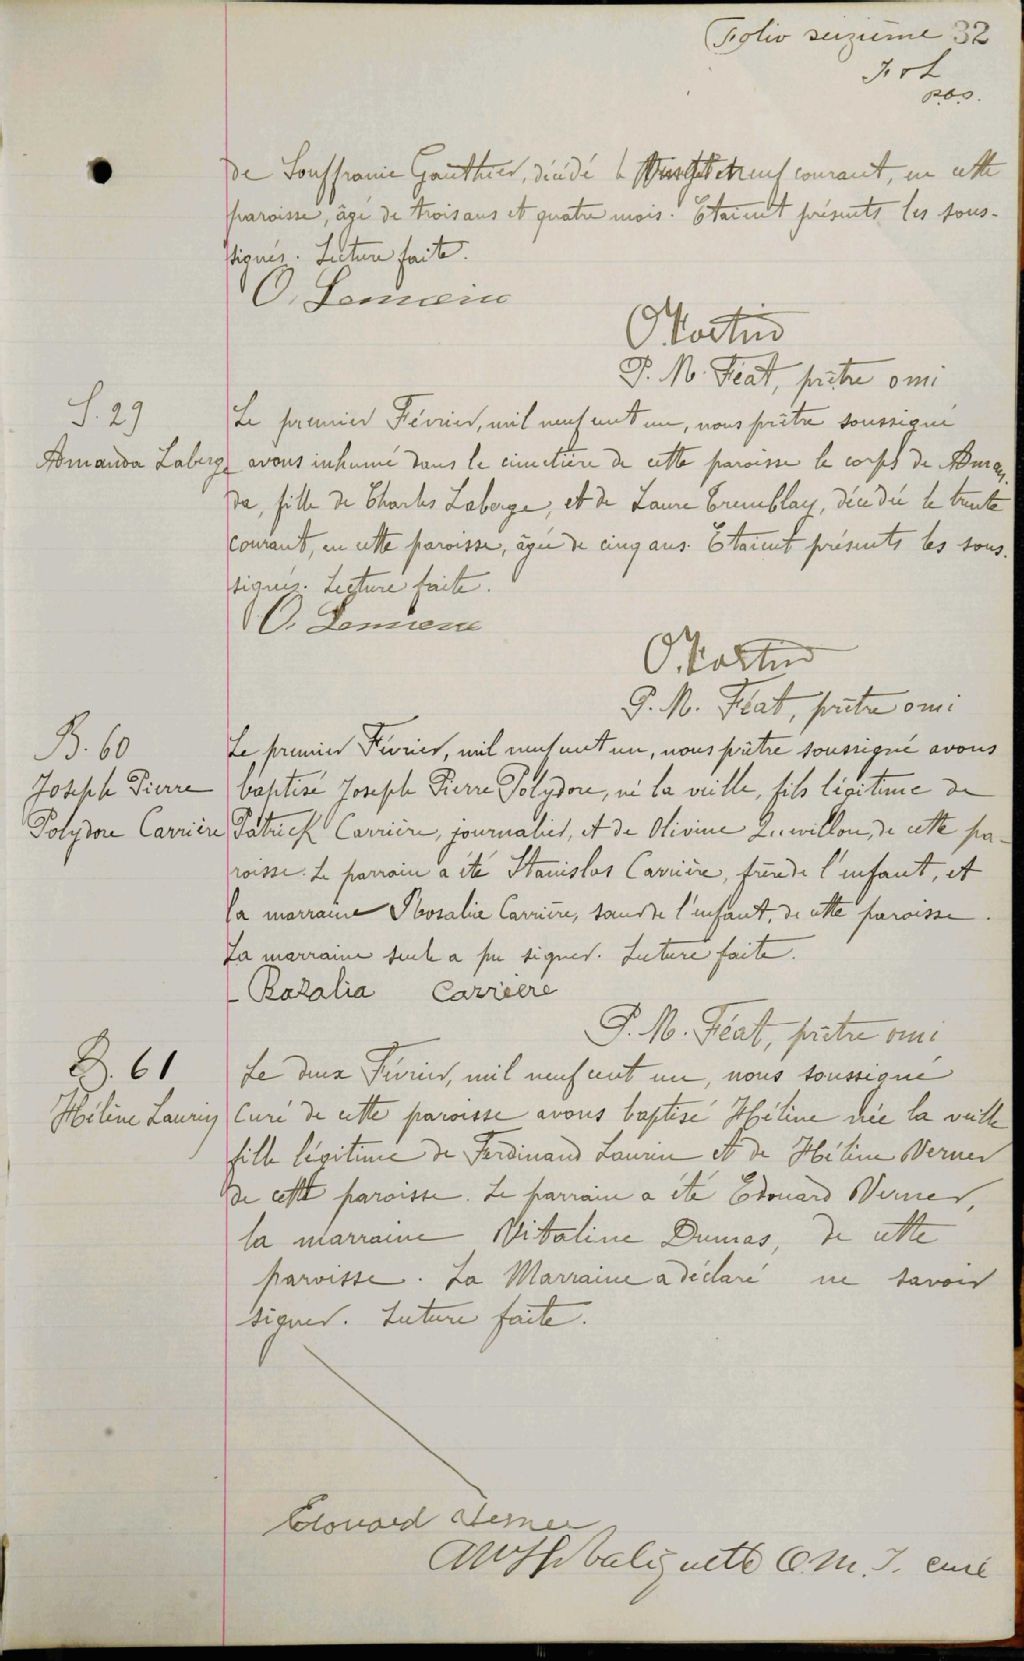 Folio seizième 32
F & L
p.c.s.
de Souffranie Gauthier, décédé le vingt et neuf courant, en cette
paroisse, âgé de trois ans et quatre mois. Etaient présents les sous-
signés. Lecture faite.
O. Lemieux
O. Fortin
P. M. Féat, prêtre omi
S. 29
Amanda Laberge
Le premier Février, mil neuf cent un, nous prêtre soussigné
avons inhumé dans le cimetière de cette paroisse le corps de Aman-
da, fille de Charles Laberge, et de Laure Tremblay, décédée le trente
courant, en cette paroisse, âgée de cinq ans. Etaient présents les sous-
signés. Lecture faite.
O. Lemieux
O. Fortin
P. M. Féat, prêtre omi
B. 60
Joseph Pierre
Polydore Carrière
Le premier Février, mil neuf cent un, nous prêtre soussigné avons
baptisé Joseph Pierre Polydore, né la veille, fils légitime de
Patrick Carrière, journalier, et de Olivine de cette pa-
roisse. Le parrain a été Stanislas Carrière, frère de l'enfant, et
la marraine Rosalie Carrière, sœur de l'enfant, de cette paroisse.
La marraine seule a pu signer. Lecture faite.
Razalia Carrière
P. M. Féat, prêtre omi
B. 61
Hélène Laurin
Le deux Février, mil neuf cent un, nous soussigné
Curé de cette paroisse avons baptisé Hélène née la veille
fille légitime de Ferdinand Laurin et de Hélène Verner
de cette paroisse. Le parrain a été Edouard Verner,
la marraine Vitaline Dumas, de cette
paroisse. La Marraine a déclaré ne savoir
signer. Lecture faite.
Edouard Verner
Valiquette O.M.I. curé